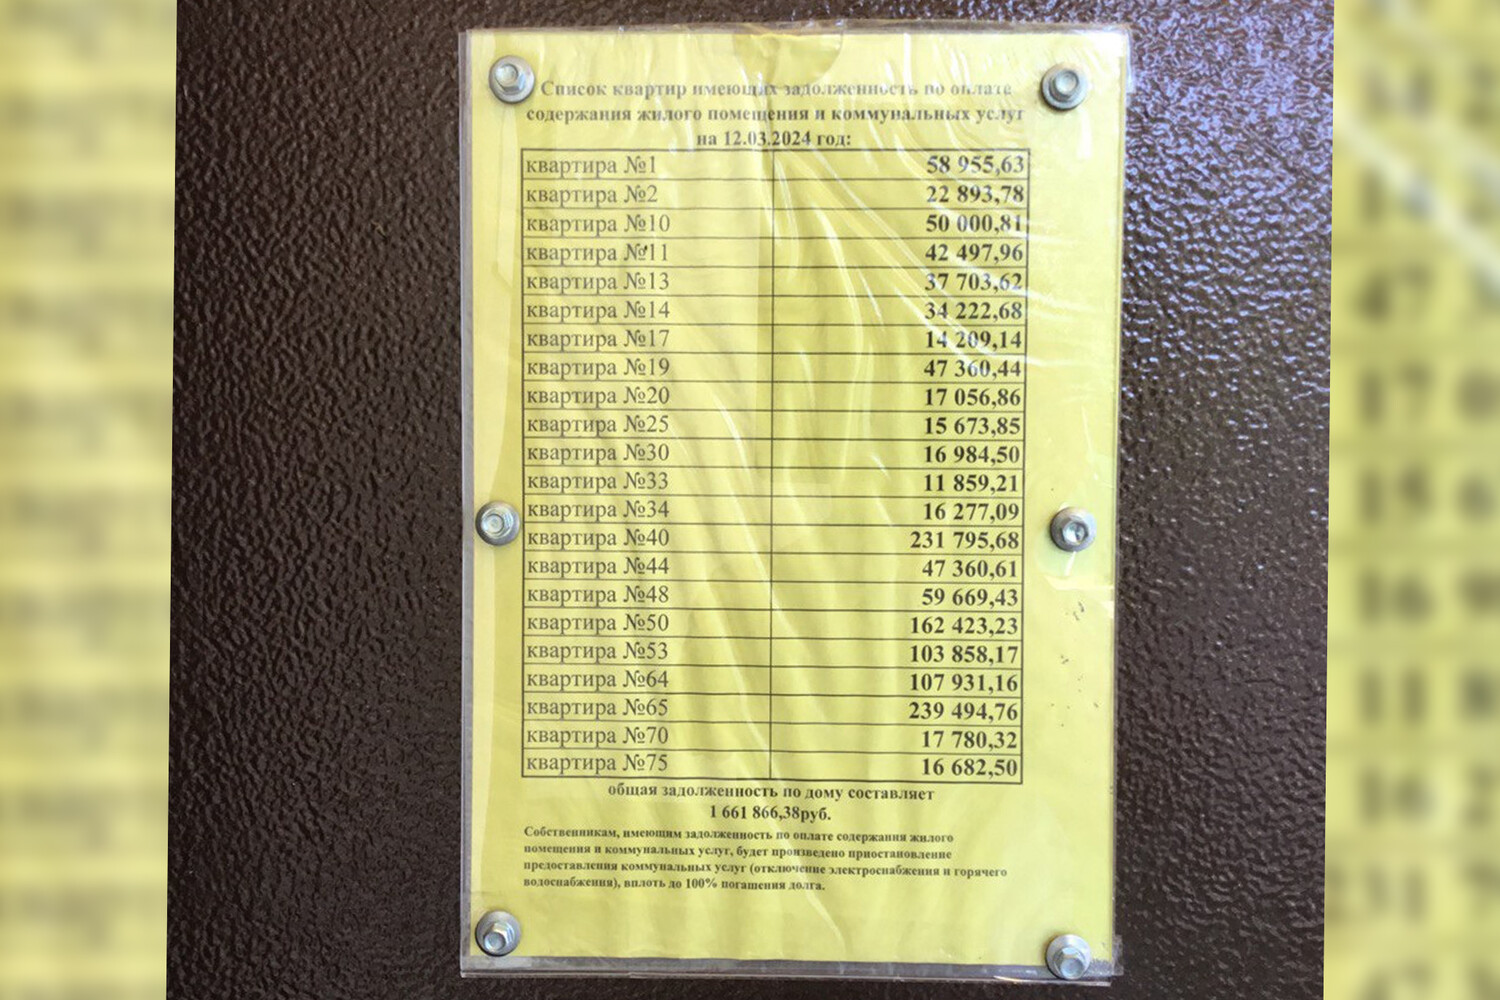 Список квартир имеющих задолженность по оплате
содержания жилого помещения и коммунальных услуг
на 12.03.2024 год:
квартира №1 58 955,63
квартира №2 22 893,78
квартира №10 50 000,81
квартира №11 42 497,96
квартира №13 37 703,62
квартира №14 34 222,68
квартира №17 14 209,14
квартира №19 47 360,44
квартира №20 17 056,86
квартира №25 15 673,85
квартира №30 16 984,50
квартира №33 11 859,21
квартира №34 16 277,09
квартира №40 231 795,68
квартира №44 47 360,61
квартира №48 59 669,43
квартира №50 162 423,23
квартира №53 103 858,17
квартира №64 107 931,16
квартира №65 239 494,76
квартира №70 17 780,32
квартира №75 16 682,50
общая задолженность по дому составляет
1 661 866,38руб.
Собственникам, имеющим задолженность по оплате содержания жилого
помещения и коммунальных услуг, будет произведено приостановление
предоставления коммунальных услуг (отключение электроснабжения и горячего
водоснабжения), вплоть до 100% погашения долга.